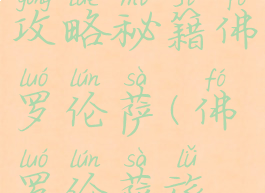 gōng lüè mì jí fó
攻略秘籍佛
luó lún sà fó
罗伦萨(佛
luó lún sà lǚ
罗伦萨旅